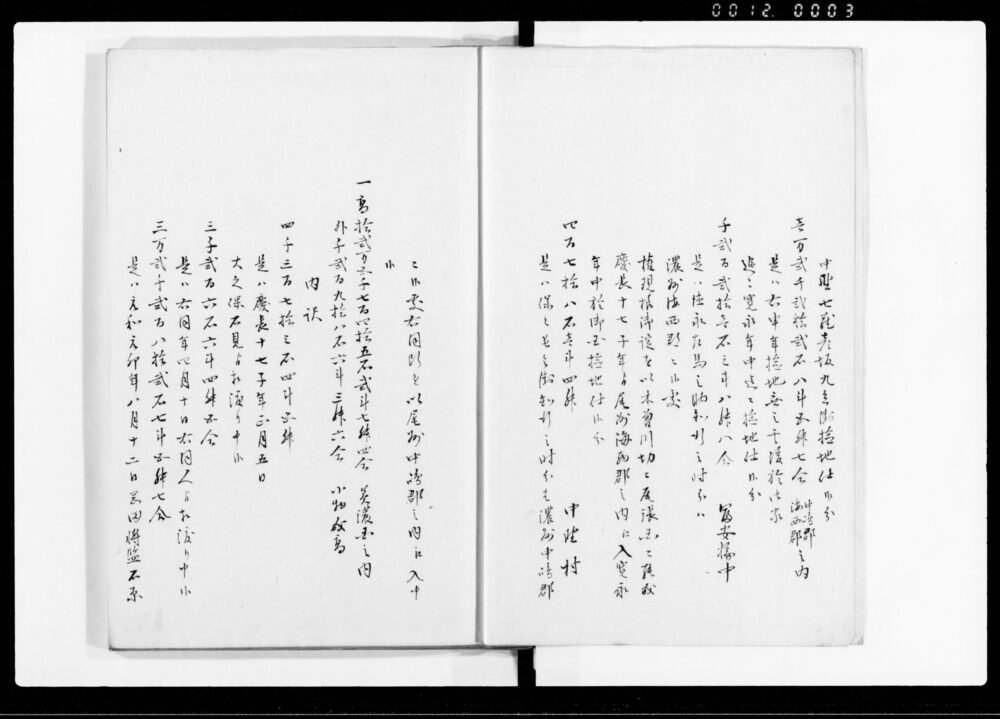 0012. 0003
中野七蔵彦坂九兵衛検地仕候分
壱万弐千弐拾弐石八斗五升七合 中嶋郡海西郡之内
是ハ右申年検地無之其後於御家
追々寛永年中迄之検地仕候分
千弐百弐拾壱石三斗八升八合 冨安輪中
是ハ徳永左馬之助知行之時分ハ
濃州海西郡ニ候処
権現様御諚を以木曽川切ニ尾張国ニ罷成
慶長十七子年ゟ尾州海西郡之内江入寛永
年中於御国検地仕候分
四百七拾八石壱斗四升 中野村
是ハ保々長兵衛知行之時分は濃州中嶋郡
ニ候処右同断を以尾州中嶋郡之内江入申
候
一高拾弐万三千七百四拾五石弐斗七升四合 美濃国之内
外千弐百九拾八石六斗三升六合 小物成高
内訳
四千三百七拾三石四斗五升
是ハ慶長十七子年正月五日
大久保石見ゟ相渡り申候
三千弐百六石六斗四升五合
是ハ右同年四月十日右同人ゟ相渡り申候
三万弐千弐百八拾弐石七斗五升七合
是ハ元和元卯年八月十二日岡田将監石原